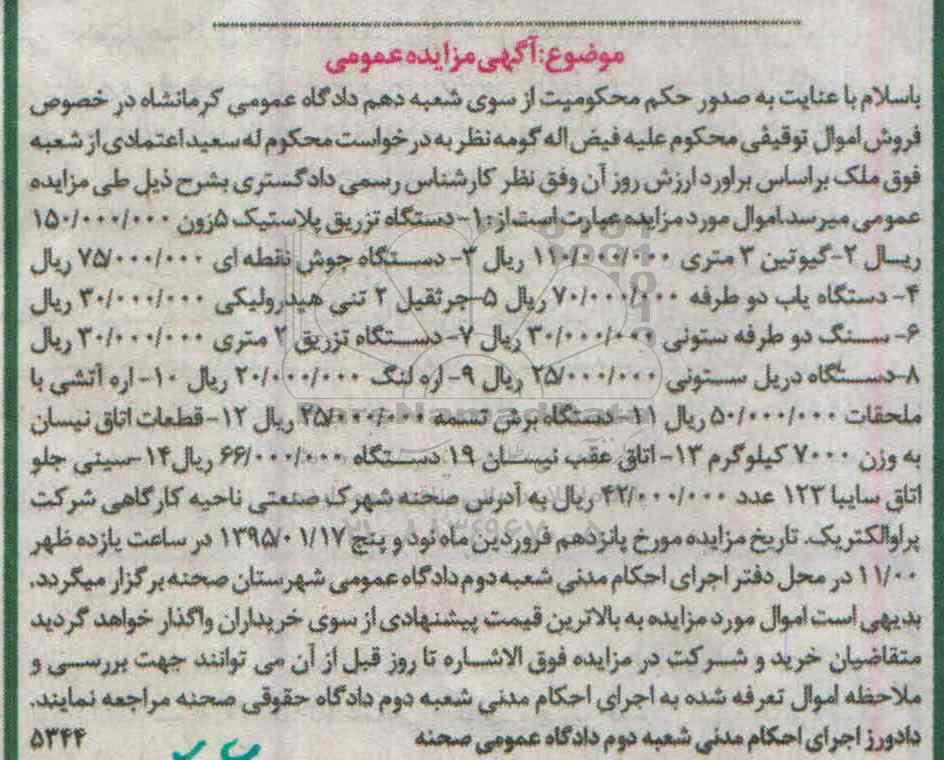 موضوع: آگهی مزایده عمومی
باسلام با عنایت به صدور حکم محکومیت از سوی شعبه دهم دادگاه عمومی کرمانشاه در خصوص
فروش اموال توقیفی محکوم علیه فیض اله گومه نظر به درخواست محکوم له سعید اعتمادی از شعبه
فوق ملک براساس براورد ارزش روز آن وفق نظر کارشناس رسمی دادگستری بشرح ذیل طی مزایده
عمومی میرسد. اموال مورد مزایده عبارت است از: ۱- دستگاه تزریق پلاستیک ۵زون ۱۵۰/۰۰۰/۰۰۰
ریال ۲-گیوتین ۳ متری ۱۱۰/۰۰۰/۰۰۰ ریال ۳- دستگاه جوش نقطه ای ۷۵/۰۰۰/۰۰۰ ریال
۴- دستگاه یاب دو طرفه ۷۰/۰۰۰/۰۰۰ ریال ۵-جرثقیل ۲ تنی هیدرولیکی ۳۰/۰۰۰/۰۰۰ ریال
۶- سنگ دو طرفه ستونی ۳۰/۰۰۰/۰۰۰ ریال ۷- دستگاه تزریق ۲ متری ۳۰/۰۰۰/۰۰۰ ریال
۸-دستگاه دریل ستونی ۲۵/۰۰۰/۰۰۰ ریال ۹- اره لنگ ۲۰/۰۰۰/۰۰۰ ریال ۱۰- اره آتشی با
ملحقات ۵۰/۰۰۰/۰۰۰ ریال ۱۱- دستگاه برش تسمه ۲۵/۰۰۰/۰۰۰ ریال ۱۲- قطعات اتاق نیسان
به وزن ۷۰۰۰ کیلوگرم ۱۳- اتاق عقب نیسان ۱۹ دستگاه ۶۶/۰۰۰/۰۰۰ ریال ۱۴-سینی جلو
اتاق سایپا ۱۲۳ عدد ۴۲/۰۰۰/۰۰۰ ریال به آدرس صحنه شهرک صنعتی ناحیه کارگاهی شرکت
پراوالکتریک. تاریخ مزایده مورخ پانزدهم فروردین ماه نود و پنج ۱۳۹۵/۰۱/۱۷ در ساعت یازده ظهر
۱۱/۰۰ در محل دفتر اجرای احکام مدنی شعبه دوم دادگاه عمومی شهرستان صحنه برگزار میگردد.
بدیهی است اموال مورد مزایده به بالاترین قیمت پیشنهادی از سوی خریداران واگذار خواهد گردید
متقاضیان خرید و شرکت در مزایده فوق الاشاره تا روز قبل از آن می توانند جهت بررسی و
ملاحظه اموال تعرفه شده به اجرای احکام مدنی شعبه دوم دادگاه حقوقی صحنه مراجعه نمایند.
دادورز اجرای احکام مدنی شعبه دوم دادگاه عمومی صحنه ۵۳۴۴